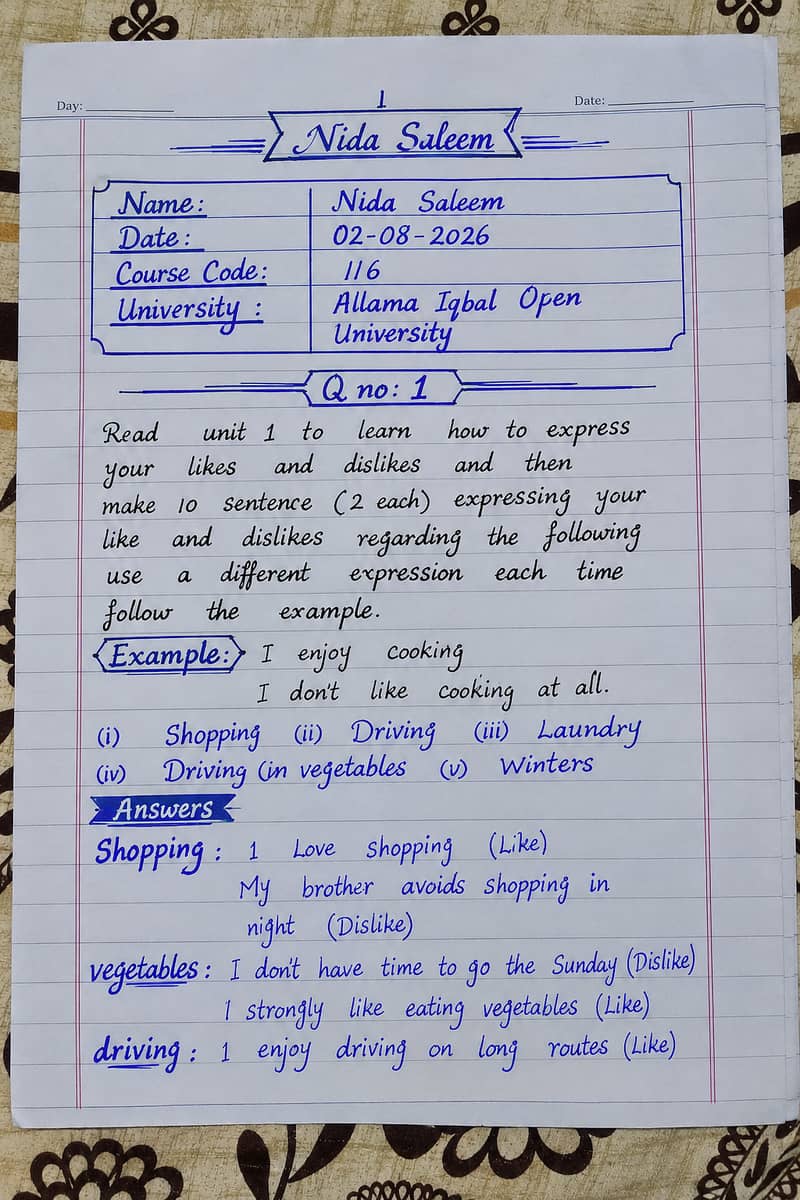 1
Day: Date:
Nida Saleem
Name: Nida Saleem
Date: 02-08-2026
Course Code: 116
University : Allama Iqbal Open
University
Q no: 1
Read unit 1 to learn how to express
your likes and dislikes and then
make 10 sentence (2 each) expressing your
like and dislikes regarding the following
use a different expression each time
follow the example.
Example: I enjoy cooking
I don't like cooking at all.
(i) Shopping (ii) Driving (iii) Laundry
(iv) Driving (in vegetables (v) Winters
Answers
Shopping : 1 Love shopping (Like)
My brother avoids shopping in
night (Dislike)
vegetables : I don't have time to go the Sunday (Dislike)
I strongly like eating vegetables (Like)
driving : 1 enjoy driving on long routes (Like)